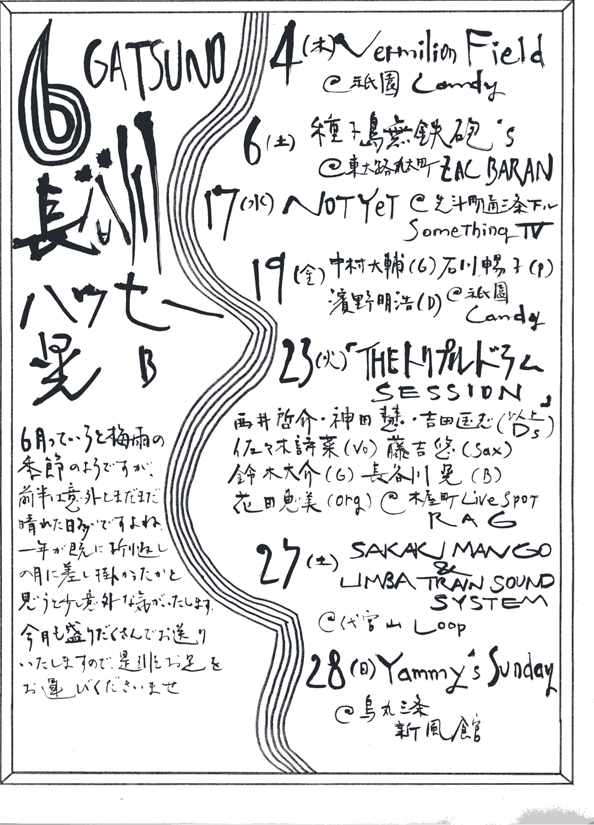 6 GATSUNO
長谷川
ハッセー
晃 B
6月っていうと梅雨の
季節のようですが、
前半は意外とまだまだ
晴れた日多いですよね。
一年が既に折り返し
の月に差し掛かったかと
思うと少し意外な気がいたします。
今月も盛りだくさんでお送り
いたしますので、是非お足を
お運びくださいませ
4(木) Vermilion Field
@祇園 Candy
6(土) 種子島無鉄砲's
@東大路丸太町 ZAC BARAN
17(水) NOT YET @先斗町通三条下ル
Something TV
19(金) 中村大輔(G) 石川暢子(P)
濱野明浩(D) @祇園
Candy
23(火)「THEトリプルドラム
SESSION」
西井哲介・神田慧・吉田匡志(以上Ds)
佐々木詩菜(Vo) 藤吉悠(Sax)
鈴木大介(G) 長谷川晃(B)
花田恵美(org) @木屋町 Live Spot
RAG
27(土) SAKAKI MANGO
&
LIMBA TRAIN SOUND
SYSTEM
@代官山 Loop
28(日) Yammy's Sunday
@烏丸三条
新風館